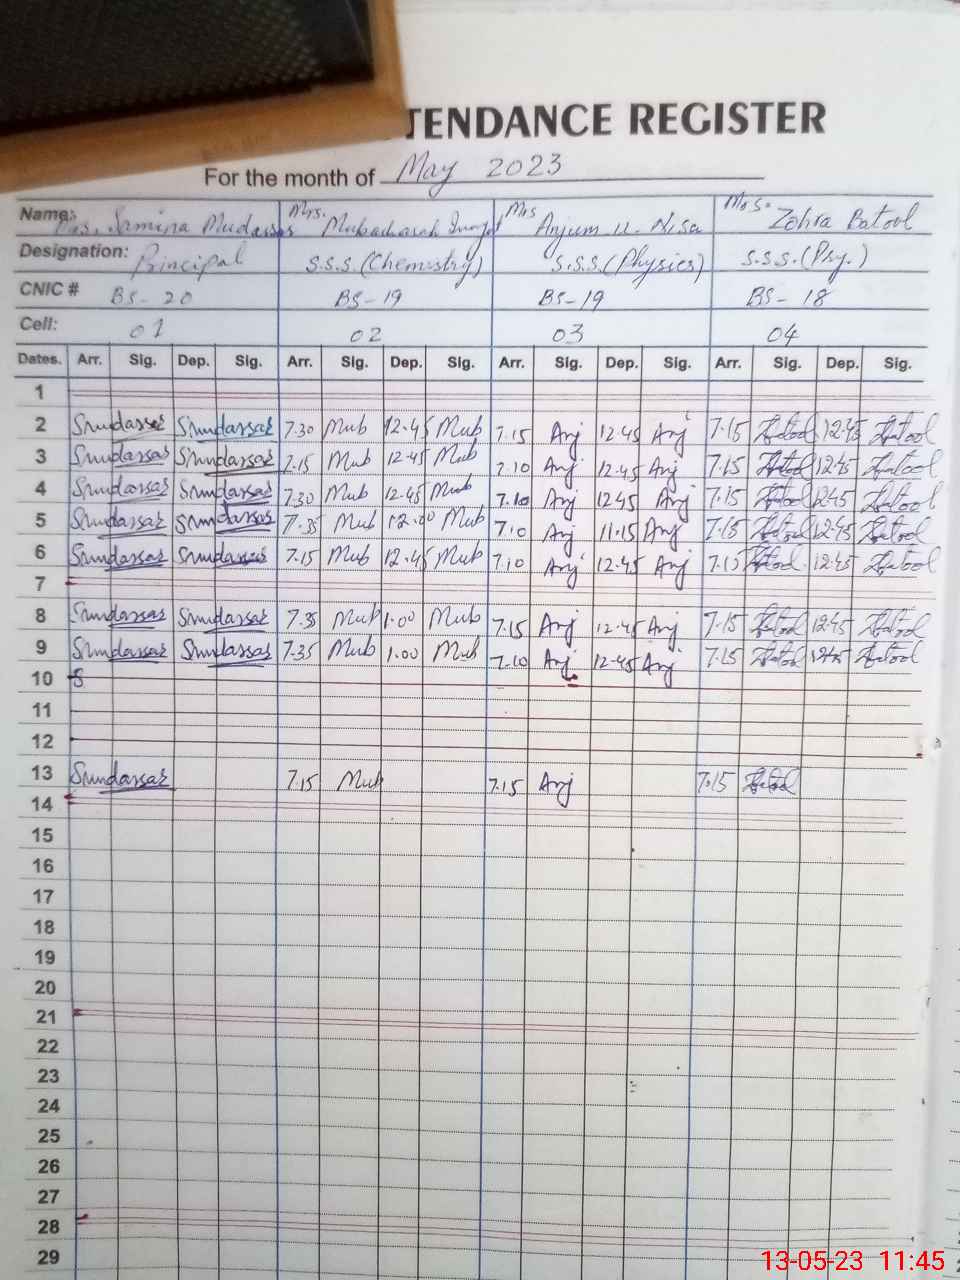 TENDANCE REGISTER
For the month of May 2023
Name: Mrs. Samina Mudassar Mrs. Mubasharah Mrs Anjum u. Nisa Mrs. Zohra Batool
Designation: Principal S.S.S. (Chemistry) S.S.S. (Physics) S.S.S. (Psy.)
CNIC # BS-20 BS-19 BS-19 BS-18
Cell: 01 02 03 04
Dates. Arr. Sig. Dep. Sig. Arr. Sig. Dep. Sig. Arr. Sig. Dep. Sig. Arr. Sig. Dep. Sig.
1
2 Smudassar Smudassar 7.30 Mub 12.45 Mub 7.15 Anj 12.45 Anj 7.15 Zbatool 12.45 Zbatool
3 Smudassar Smudassar 7.15 Mub 12.45 Mub 7.10 Anj 12.45 Anj 7.15 Zbatool 12.45 Zbatool
4 Smudassar Smudassar 7.30 Mub 12.45 Mub 7.10 Anj 12.45 Anj 7.15 Zbatool 12.45 Zbatool
5 Smudassar Smudassar 7.35 Mub 12.00 Mub 7.10 Anj 11.15 Anj 7.15 Zbatool 12.45 Zbatool
6 Smudassar Smudassar 7.15 Mub 12.45 Mub 7.10 Anj 12.45 Anj 7.15 Zbatool 12.45 Zbatool
7
8 Smudassar Smudassar 7.35 Mub 1.00 Mub 7.15 Anj 12.45 Anj 7.15 Zbatool 12.45 Zbatool
9 Smudassar Smudassar 7.35 Mub 1.00 Mub 7.10 Anj 12.45 Anj 7.15 Zbatool 12.45 Zbatool
10
11
12
13 Smudassar 7.15 Mub 7.15 Anj 7.15 Zbatool
14
15
16
17
18
19
20
21
22
23
24
25
26
27
28
29
13-05-23 11:45